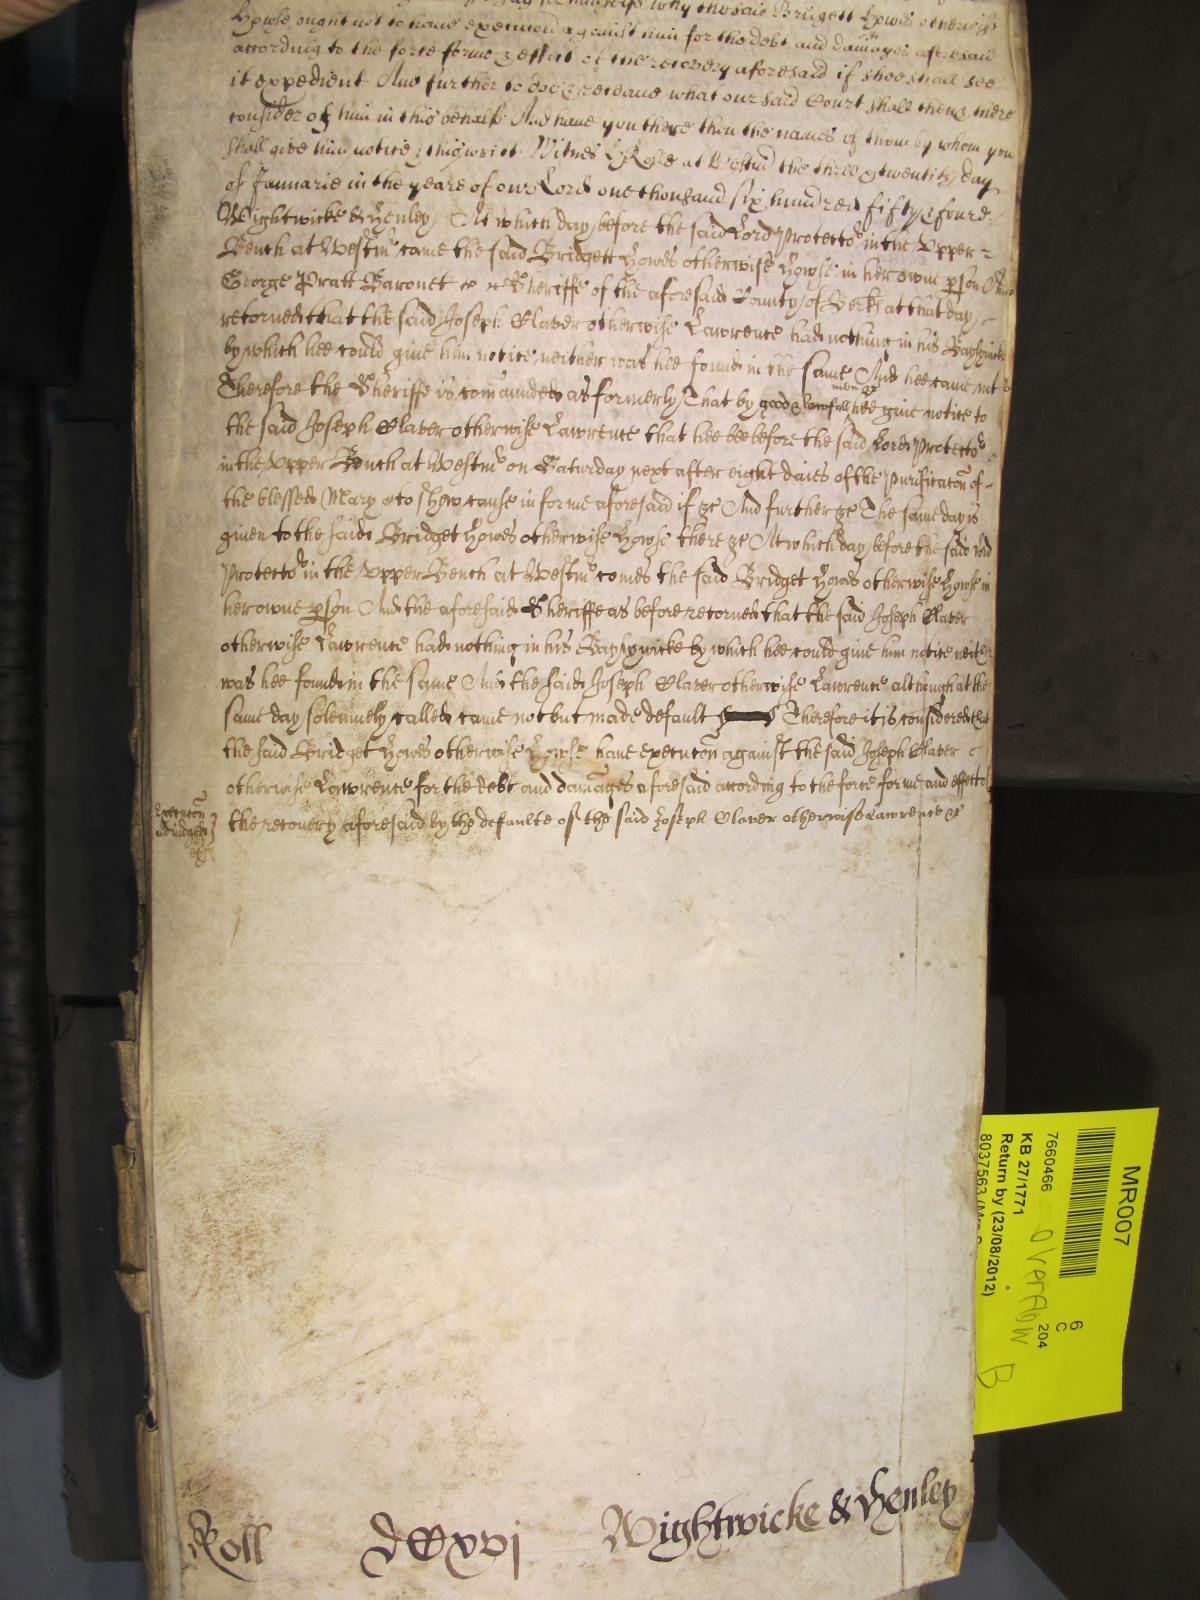 why the said Bridgett Howes otherwise
Howse ought not to have execucon against him for the debt and damages aforesaid
according to the force forme & effect of the recovery aforesaid if shee shall see
it expedient And further to doe & receave what our said Court shall then & there
consider of him in this behalfe And have you there then the names of them by whom you
shall give him notice & this writ Witnes H Rolle at Westm the three & twentith day
of Januarie in the yeare of our Lord one thousand six hundred fifty & foure
Wightwicke & Henley / At which day before the said Lord Protector in the Upper
Bench at Westm came the said Bridgett Howes otherwise Howse in her owne pson And
George Pratt Baronet Sheriffe of the aforesaid County of Berks at that day
retorned that the said Joseph Slater otherwise Lawrence had nothing in his Baylywicke
by which hee could give him notice neither was hee found in the same And hee came not
Therefore the Sheriffe is comaunded as formerly That by good & lawfull men &c hee give notice to
the said Joseph Slater otherwise Lawrence that hee bee before the said Lord Protector
in the Upper Bench at Westm on Saturday next after eight daies of the Purificacon of
the blessed Mary to shew cause in forme aforesaid if &c And further &c The same day is
given to the said Bridget Howes otherwise Howse there &c At which day before the said Lord
Protector in the Upper Bench at Westm comes the said Bridget Howes otherwise Howse in
her owne pson And the aforesaid Sheriffe as before retorned that the said Joseph Slater
otherwise Lawrence had nothing in his Baylywicke by which hee could give him notice neither
was hee found in the same And the said Joseph Slater otherwise Lawrence although at the
same day solemnely called came not but made default Therefore it is considered that
the said Bridget Howes otherwise Howse have execucon against the said Joseph Slater
otherwise Lawrence for the debt and damages aforesaid according to the force forme and effect of
the recovery aforesaid by the defaulte of the said Joseph Slater otherwise Lawrence &c
Execucon
adiudged
&c
MR007
7660466
6
C
204
KB 27/1771
overflow
Return by (23/08/2012)
B
8037563
Roll
DCxvj
Wightwicke & Henley